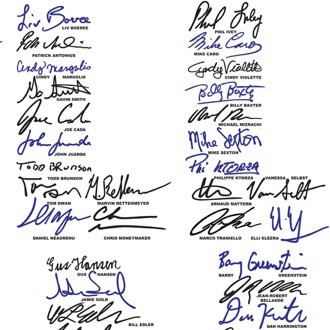 Liv Boeree
LIV BOEREE
PATRICK ANTONIUS
Cindy Margolis
CINDY MARGOLIS
GAVIN SMITH
JOE CADA
John Juanda
JOHN JUANDA
TODD BRUNSON
TODD BRUNSON
TOM DWAN MARVIN RETTENMEYER
DANIEL NEAGRENU CHRIS MONEYMAKER
Gus Hansen
GUS HANSEN
JAMIE GOLD
BILL EDLER
Phil Ivey
PHIL IVEY
Mike Caro
MIKE CARO
Cyndy Violette
CINDY VIOLETTE
Billy Baxter
BILLY BAXTER
MICHAEL MIZRACHI
Mike Sexton
MIKE SEXTON
Phi KTORZA
PHILIPPE KTORZA VANESSA SELBST
ARNAUD MATTERN
MARCO TRANIELLO ELI ELEZRA
Barry Greenstein
BARRY GREENSTEIN
JEAN-ROBERT
BELLANDE
DAN HARRINGTON